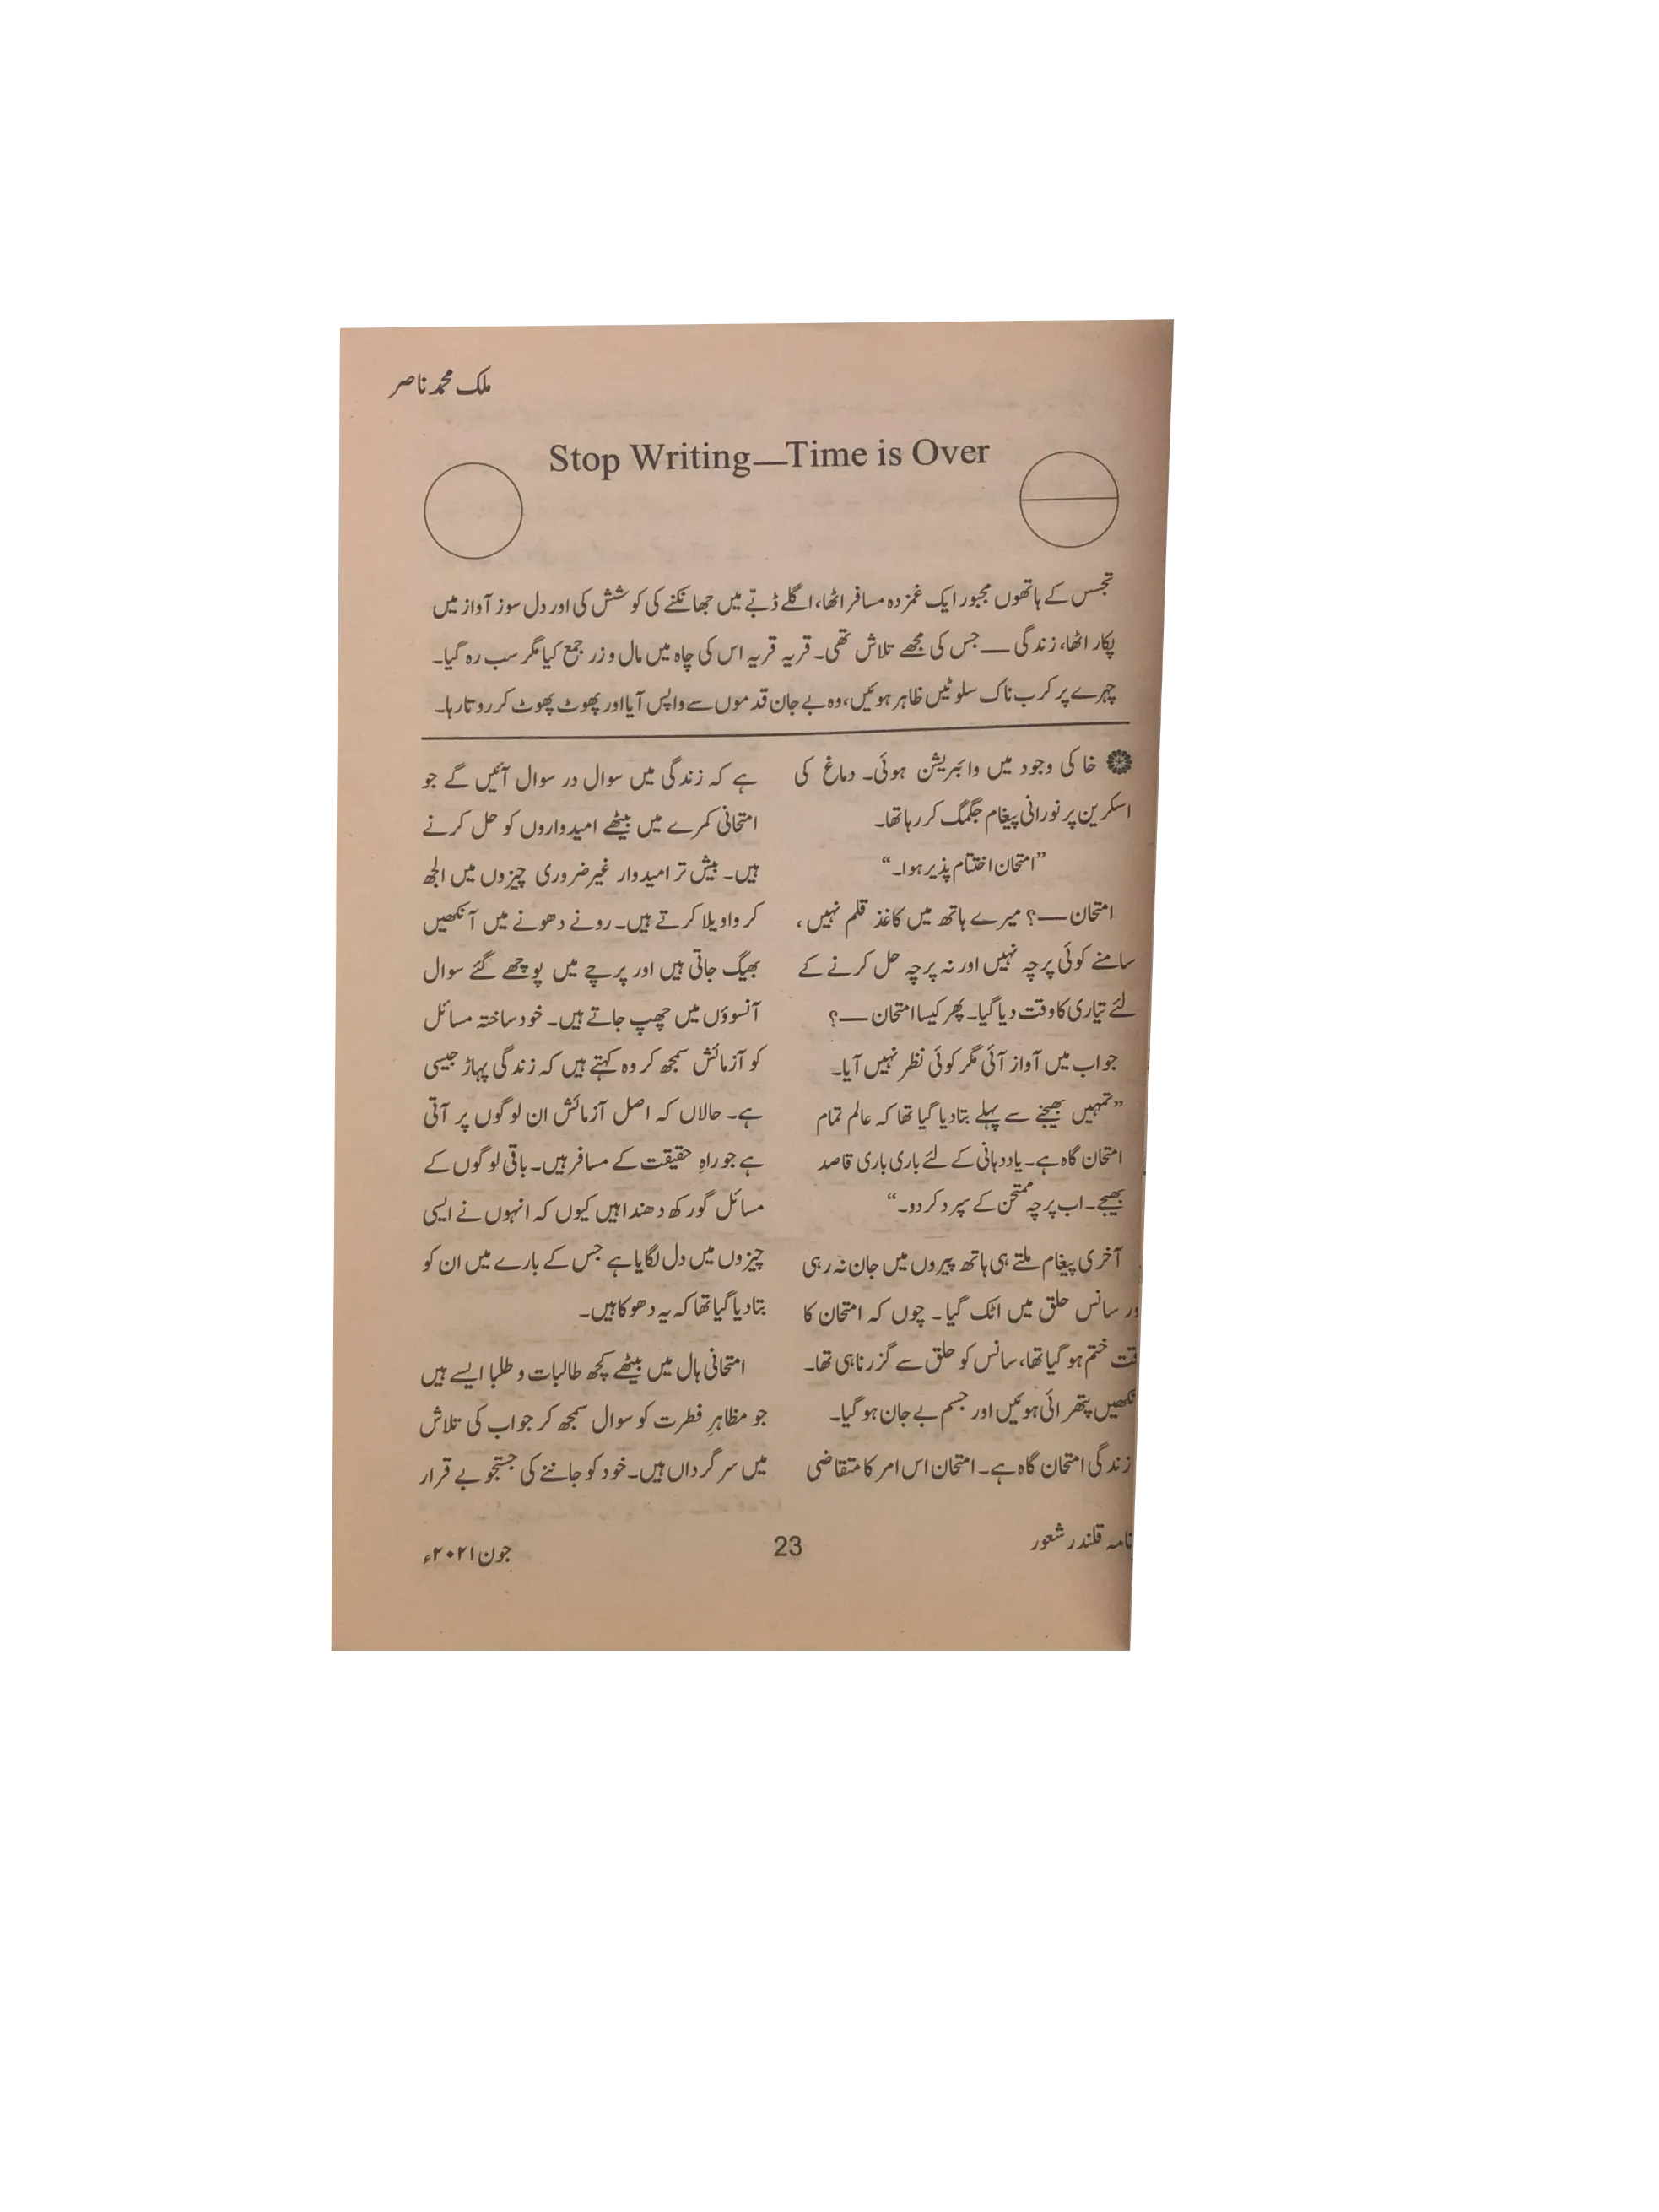 ملک محمد ناصر
Stop Writing—Time is Over
تجسس کے ہاتھوں مجبور ایک غمزدہ مسافر اٹھا، اگلے ڈبے میں جھانکنے کی کوشش کی اور دل سوز آواز میں
پکار اٹھا، زندگی — جس کی مجھے تلاش تھی۔ قریہ قریہ اس کی چاہ میں مال و زر جمع کیا مگر سب رہ گیا۔
چہرے پر کرب ناک سلوٹیں ظاہر ہوئیں، وہ بے جان قدموں سے واپس آیا اور پھوٹ پھوٹ کر روتا رہا۔
خاکی وجود میں وائبریشن ہوئی۔ دماغ کی
اسکرین پر نورانی پیغام جگمگ کر رہا تھا۔
”امتحان اختتام پذیر ہوا۔“
امتحان —؟ میرے ہاتھ میں کاغذ قلم نہیں،
سامنے کوئی پرچہ نہیں اور نہ پرچہ حل کرنے کے
لئے تیاری کا وقت دیا گیا۔ پھر کیسا امتحان —؟
جواب میں آواز آئی مگر کوئی نظر نہیں آیا۔
”تمہیں بھیجنے سے پہلے بتا دیا گیا تھا کہ عالم تمام
امتحان گاہ ہے۔ یاددہانی کے لئے باری باری قاصد
بھیجے۔ اب پرچہ ممتحن کے سپرد کر دو۔“
آخری پیغام ملتے ہی ہاتھ پیروں میں جان نہ رہی
ور سانس حلق میں اٹک گیا۔ چوں کہ امتحان کا
قت ختم ہو گیا تھا، سانس کو حلق سے گزرنا ہی تھا۔
نکھیں پتھرائی ہوئیں اور جسم بے جان ہو گیا۔
زندگی امتحان گاہ ہے۔ امتحان اس امر کا متقاضی
ہے کہ زندگی میں سوال در سوال آئیں گے جو
امتحانی کمرے میں بیٹھے امیدواروں کو حل کرنے
ہیں۔ بیش تر امیدوار غیر ضروری چیزوں میں الجھ
کر واویلا کرتے ہیں۔ رونے دھونے میں آنکھیں
بھیگ جاتی ہیں اور پرچے میں پوچھے گئے سوال
آنسوؤں میں چھپ جاتے ہیں۔ خود ساختہ مسائل
کو آزمائش سمجھ کر وہ کہتے ہیں کہ زندگی پہاڑ جیسی
ہے۔ حالاں کہ اصل آزمائش ان لوگوں پر آتی
ہے جو راہِ حقیقت کے مسافر ہیں۔ باقی لوگوں کے
مسائل گورکھ دھندا ہیں کیوں کہ انہوں نے ایسی
چیزوں میں دل لگایا ہے جس کے بارے میں ان کو
بتا دیا گیا تھا کہ یہ دھوکا ہیں۔
امتحانی ہال میں بیٹھے کچھ طالبات و طلبا ایسے ہیں
جو مظاہرِ فطرت کو سوال سمجھ کر جواب کی تلاش
میں سرگرداں ہیں۔ خود کو جاننے کی جستجو بے قرار
نامہ قلندر شعور
23
جون ۲۰۲۱ء